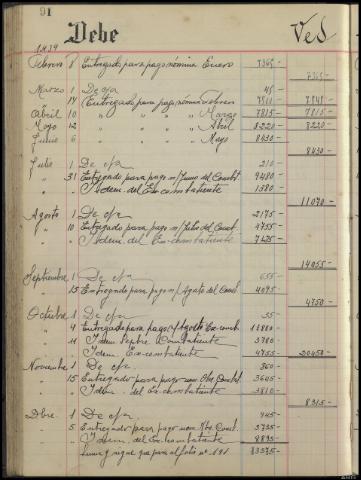 91
Debe
Ved
1939
Febrero 8 Entregado para pago nómina Enero 7365-
7365-
Marzo 1 De c/a 45-
" 14 Entregado para pago nómina Febrero 7811-
Abril 10 " " " " Marzo 7815- 7815-
Mayo 12 " " " " Abril 8220- 8220-
Junio 6 " " " " Mayo 8430-
8430-
Julio 1 De c/a 210-
" 31 Entregado para pago n/ Junio del Combt 9480-
" " Idem. del Ex-combatiente 1380-
11070-
Agosto 1 De c/a 2175-
" 10 Entregado para pago n/ Julio del Comb. 4755-
" " Idem. del Ex-combatiente 7125-
14055-
Septiembre 1 De c/a 655-
" 15 Entregado para pago n/ Agosto del Comb. 4095-
4750-
Octubre 1 De c/a 35-
" 4 Entregado para pago n/ Agosto Ex-comb 11880-
" 11 Idem Sepbre. Combatiente 3780-
" " Idem. Ex-combatiente 4755- 20450-
Noviembre 1 De c/a 360-
" 15 Entregado para pago nom Obre Combt. 3645-
" " Idem. del Ex-combatiente 3810-
8315-
Dbre. 1 De c/a 945-
" 5 Entregado para pago nom Nbre Combt. 3735-
" " Idem. del Ex-combatiente 8895-
Suma y sigue que para al folio nº 191 83575-